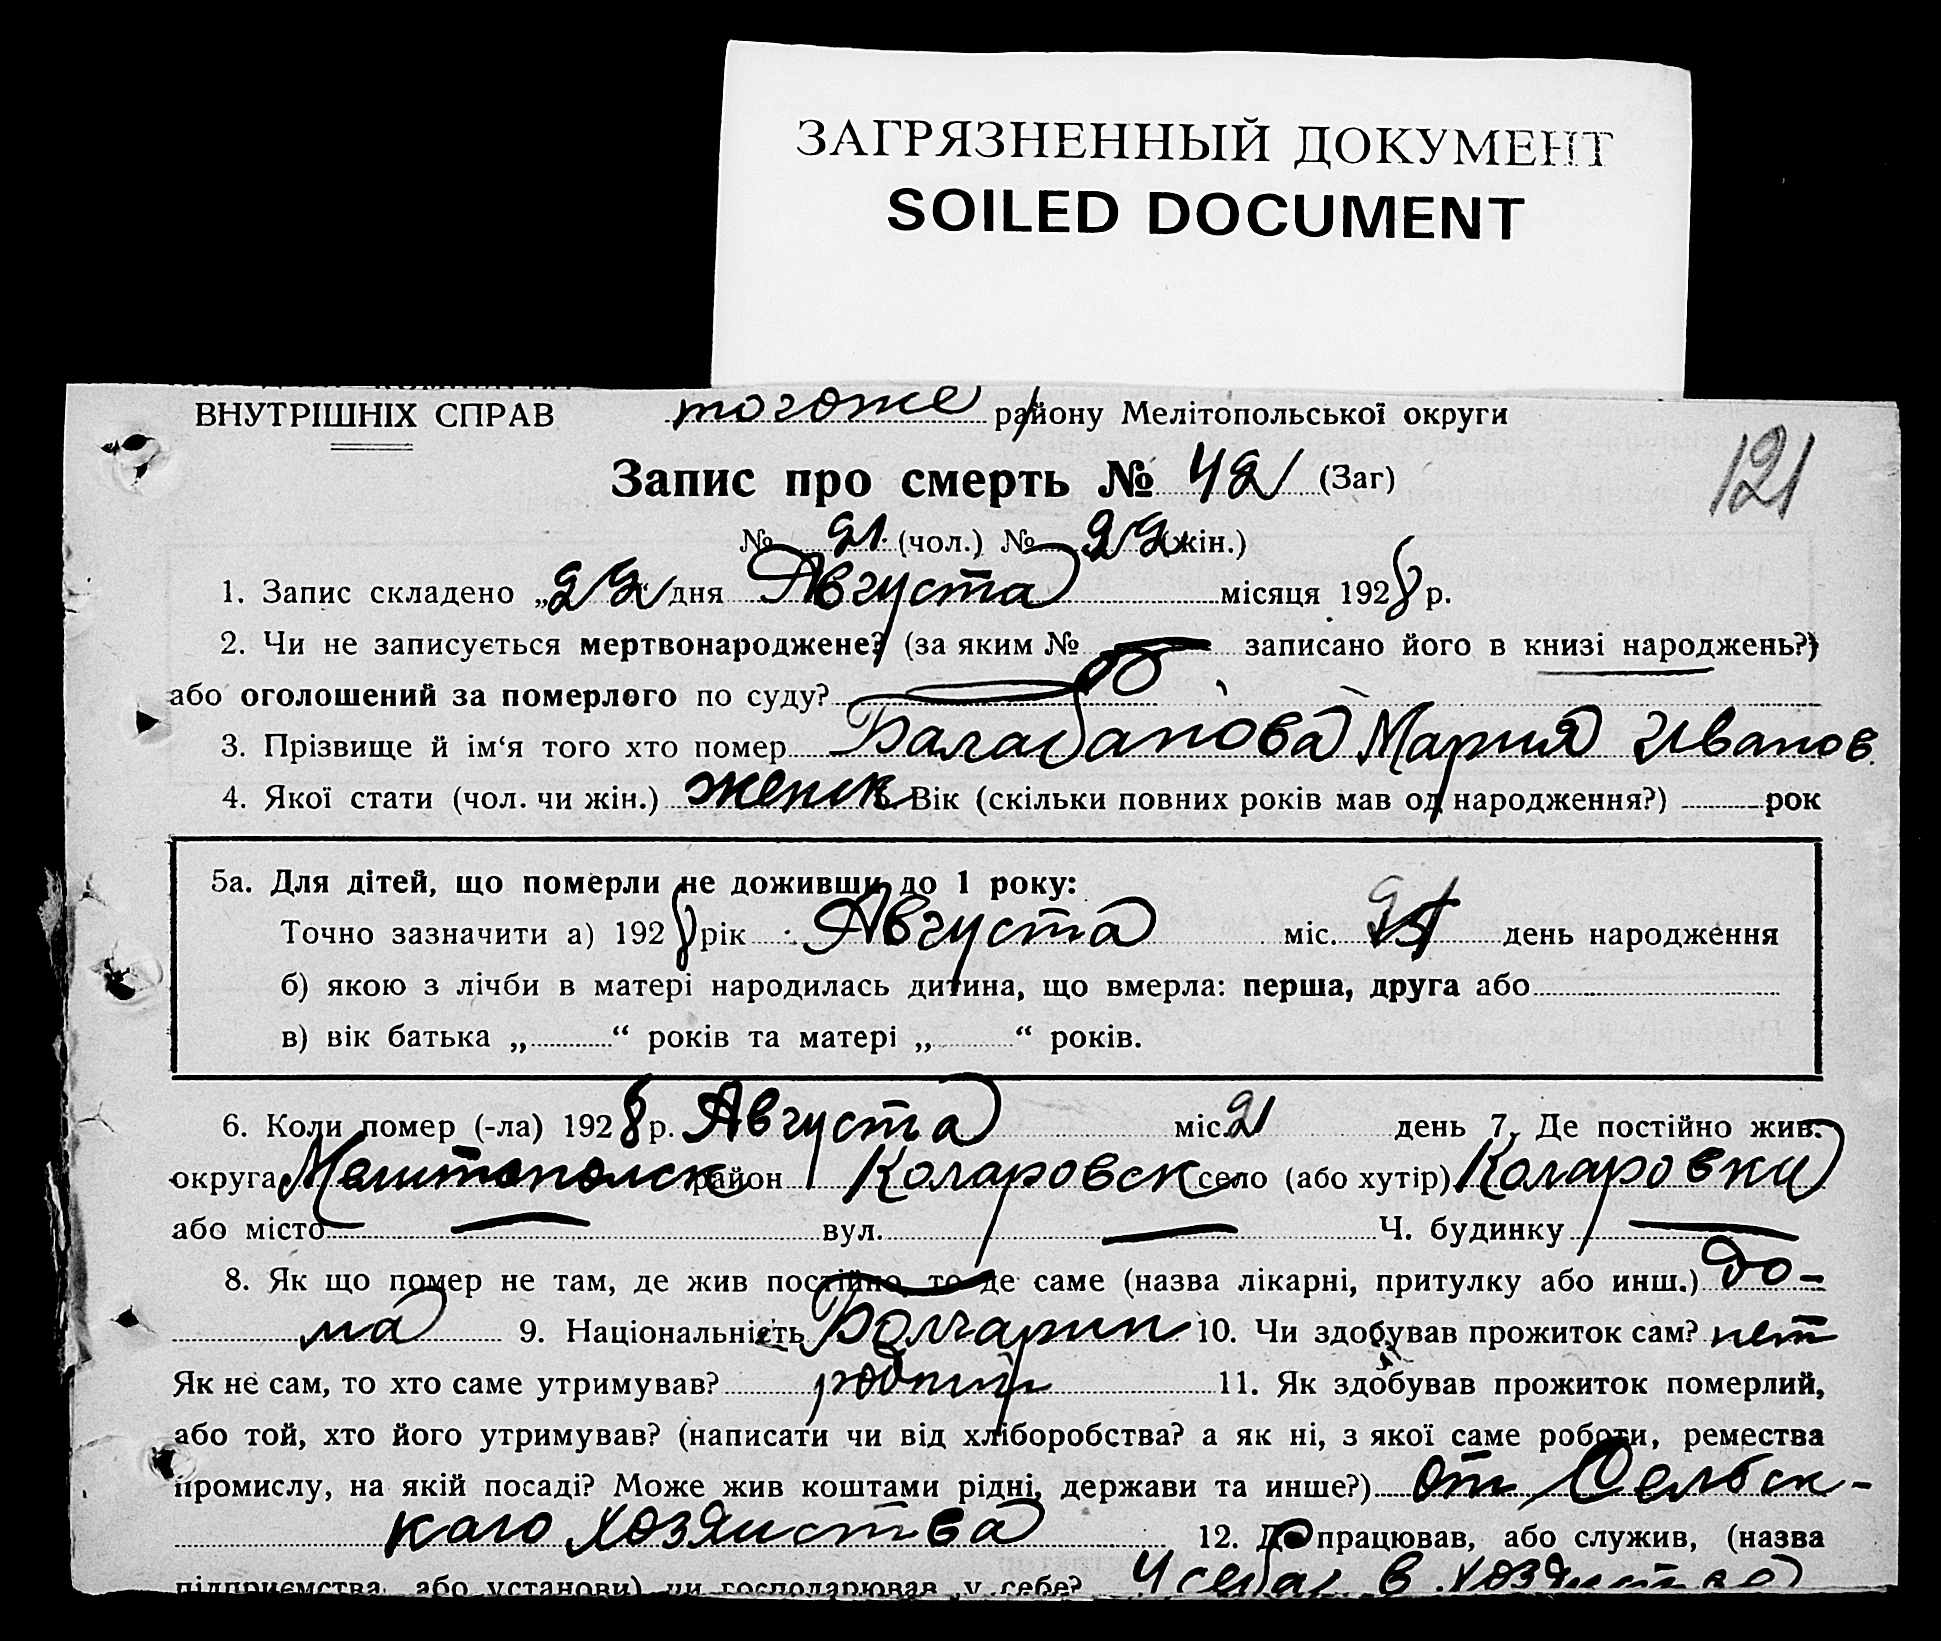 ЗАГРЯЗНЕННЫЙ ДОКУМЕНТ
SOILED DOCUMENT
ВНУТРІШНІХ СПРАВ тогоже району Мелітопольської округи
121
Запис про смерть № 42 (Заг)
№ 21 (чол.) № 22 (жін.)
1. Запис складено „22“ дня Августа місяця 1928 р.
2. Чи не записується мертвонароджене? (за яким № записано його в книзі народжень?)
або оголошений за померлого по суду?
3. Прізвище й ім‘я того хто помер Балабанова Мария Иванов.
4. Якої стати (чол. чи жін.) женск Вік (скільки повних років мав од народження?) рок
5а. Для дітей, що померли не доживши до 1 року:
Точно зазначити а) 1928 рік Августа міс. день народження
б) якою з лічби в матері народилась дитина, що вмерла: перша, друга або
в) вік батька „ “ років та матері „ “ років.
6. Коли помер (-ла) 1928 р. Августа міс. 21 день 7. Де постійно жив:
округа Мелитопольск район Коларовск село (або хутір) Коларовки
або місто — вул. — Ч. будинку —
8. Як що помер не там, де жив постійно, то де саме (назва лікарні, притулку або инш.) до-
ма 9. Національність Болгарин 10. Чи здобував прожиток сам? нет
Як не сам, то хто саме утримував? 11. Як здобував прожиток померлий,
або той, хто його утримував? (написати чи від хліборобства? а як ні, з якої саме роботи, ремества
промислу, на якій посаді? Може жив коштами рідні, держави та инше?) От Сельск-
каго хозяиства 12. Де працював, або служив, (назва
підприємства, або установи) чи господарював у себе? У себя в хозяиства